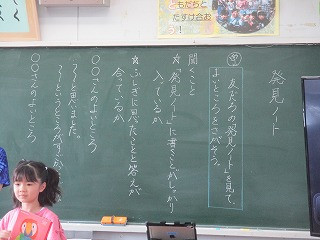 発見ノート
め
友だちの「発見ノート」を見て、
よいところをさがそう。
聞くこと
☆「発見ノート」に書くことがしっかり
入っているか
☆ふしぎに思ったことと答えが
合っているか
〇〇さんのよいところ
〜と思いました。
〜というところがすごい
〇〇さんのよいところ
ともだちと
たすけ合おう!